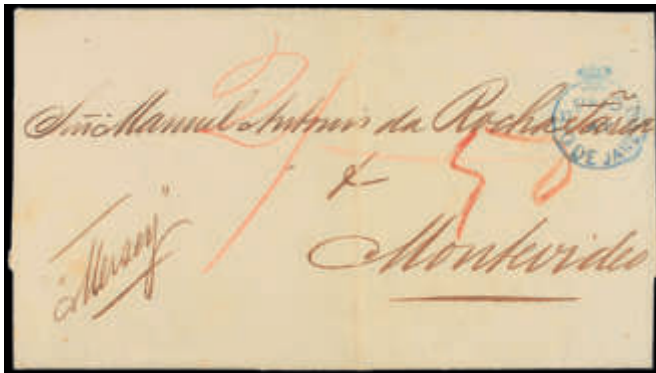 Manuel Antonio da Rocha
Montevideo
"Mersey"
DE JAN